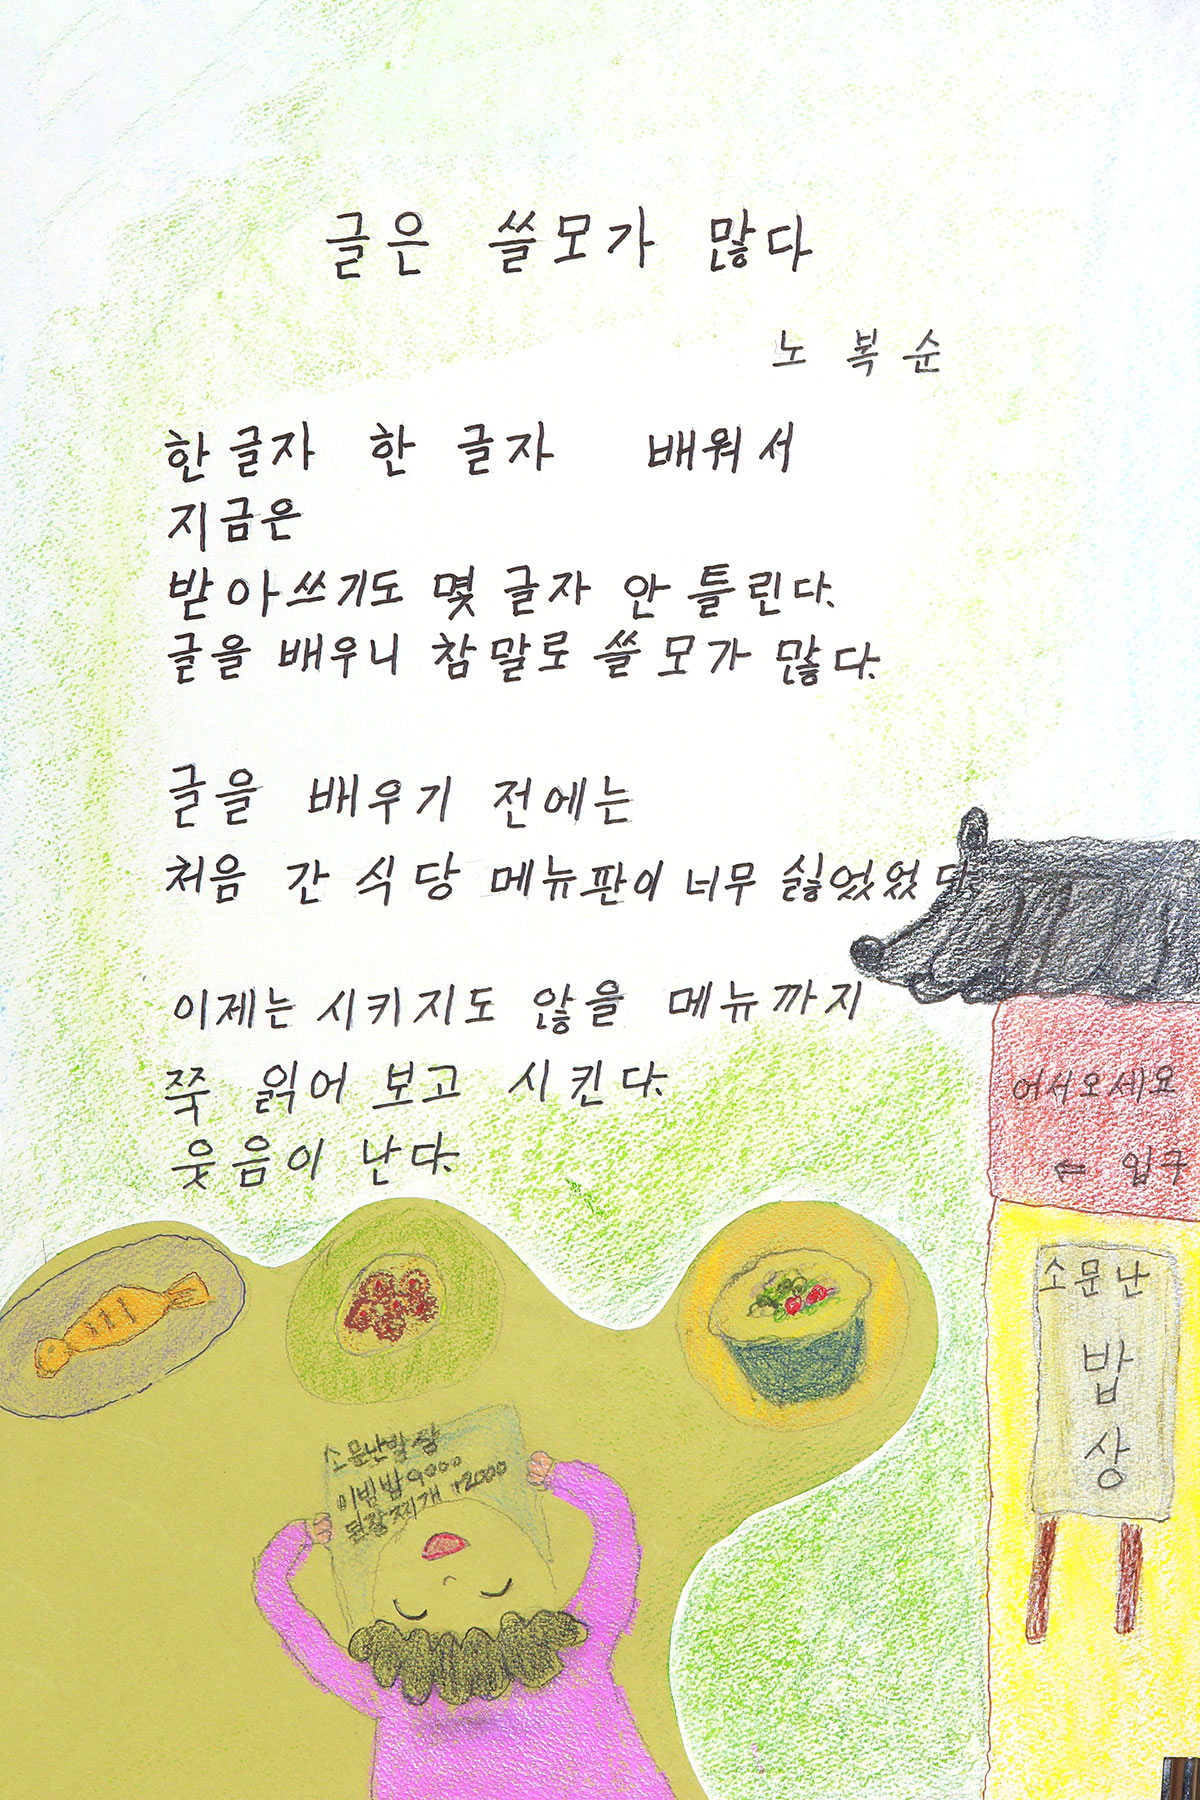 글은 쓸모가 많다
노 복 순
한 글자 한 글자 배워서
지금은
받아쓰기도 몇 글자 안 틀린다.
글을 배우니 참말로 쓸모가 많다.
글을 배우기 전에는
처음 간 식당 메뉴판이 너무 싫었었다.
이제는 시키지도 않을 메뉴까지
쭉 읽어 보고 시킨다.
웃음이 난다.
어서오세요
⇐ 입구
소문난
밥
상
소문난밥상
이빔밥 9000
된장찌개 12000